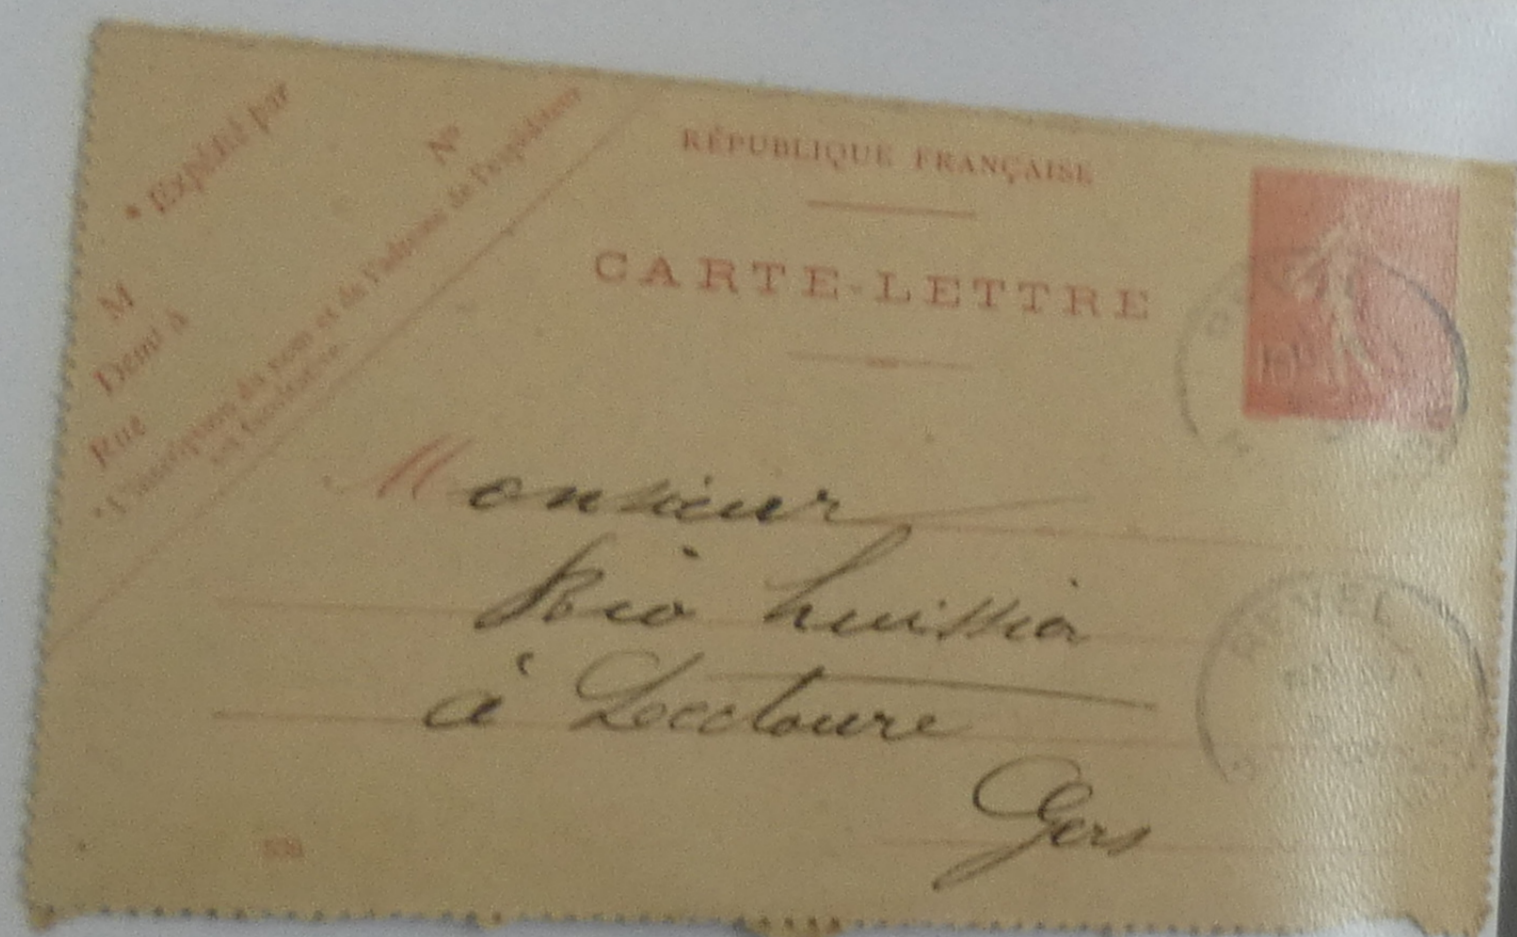 * Expédié par
N°
M
Demt à
Rue
* L'inscription du nom et de l'adresse de l'expéditeur
est facultative.
RÉPUBLIQUE FRANÇAISE
CARTE-LETTRE
10c
Monsieur
Rio huissier
à Lectoure
Gers
REVEL